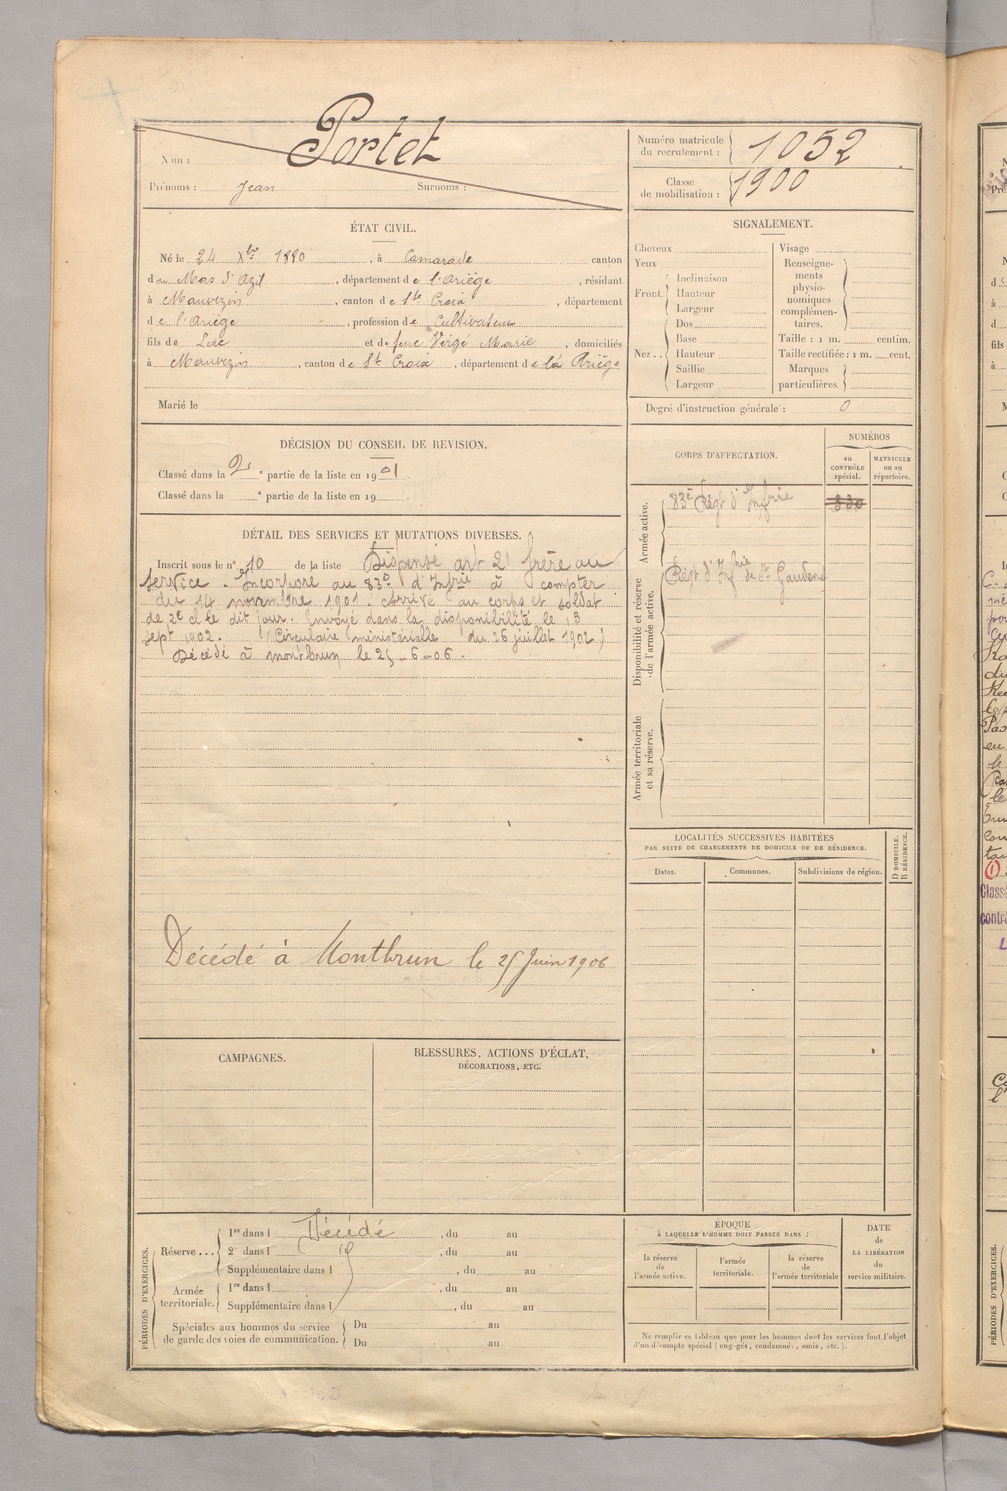 Nom : Portet
Prénoms : Jean Surnoms :
Numéro matricule du recrutement : 1052
Classe de mobilisation : 1900
ÉTAT CIVIL.
Né le 24 Xbre 1880, à Camarade canton
du Mas d'Azil, département de l'Ariège, résidant
à Mauvezin, canton de Ste Croix, département
de l'Ariège, profession de Cultivateur
fils de Luc et de feue Vergé Marie, domiciliés
à Mauvezin, canton de St Croix, département de la Ariège
Marié le
SIGNALEMENT.
Cheveux
Yeux
Front. Inclinaison
Hauteur
Largeur
Nez .. Dos
Base
Hauteur
Saillie
Largeur
Visage
Renseignements physionomiques complémentaires.
Taille : 1 m. centim.
Taille rectifiée : 1 m. cent.
Marques particulières.
Degré d'instruction générale : 0
DÉCISION DU CONSEIL DE REVISION.
Classé dans la 2e partie de la liste en 1901
Classé dans la e partie de la liste en 19
CORPS D'AFFECTATION.
NUMÉROS
au CONTRÔLE spécial.
MATRICULE ou au répertoire.
Armée active.
83e Régt d'Infrie
330
Disponibilité et réserve de l'armée active.
Régt d'Infrie de St Gaudens
Armée territoriale et sa réserve.
DÉTAIL DES SERVICES ET MUTATIONS DIVERSES.
Inscrit sous le n° 10 de la liste Dispensé art 21 frère au
service. Incorporé au 83e d'Infrie à compter
du 14 novembre 1901. Arrivé au corps et soldat
de 2e cl le dit jour. Envoyé dans la disponibilité le 13
sept 1902. (Circulaire ministérielle du 26 juillet 1902)
Décédé à Montbrun le 25-6-06.
Décédé à Montbrun le 25 Juin 1906
LOCALITÉS SUCCESSIVES HABITÉES
PAR SUITE DE CHANGEMENTS DE DOMICILE OU DE RÉSIDENCE.
Dates. Communes. Subdivisions de région. D DOMICILE. R RÉSIDENCE.
CAMPAGNES.
BLESSURES, ACTIONS D'ÉCLAT,
DÉCORATIONS, ETC.
PÉRIODES D'EXERCICES.
Réserve ... 1re dans l Décédé, du au
2e dans l, du au
Supplémentaire dans l, du au
Armée territoriale. 1re dans l, du au
Supplémentaire dans l, du au
Spéciales aux hommes du service de garde des voies de communication. Du au
Du au
ÉPOQUE
À LAQUELLE L'HOMME DOIT PASSER DANS :
la réserve de l'armée active.
l'armée territoriale.
la réserve de l'armée territoriale
DATE de LA LIBÉRATION du service militaire.
Ne remplir ce tableau que pour les hommes dont les services font l'objet
d'un décompte spécial (engagés, condamnés, omis, etc.).